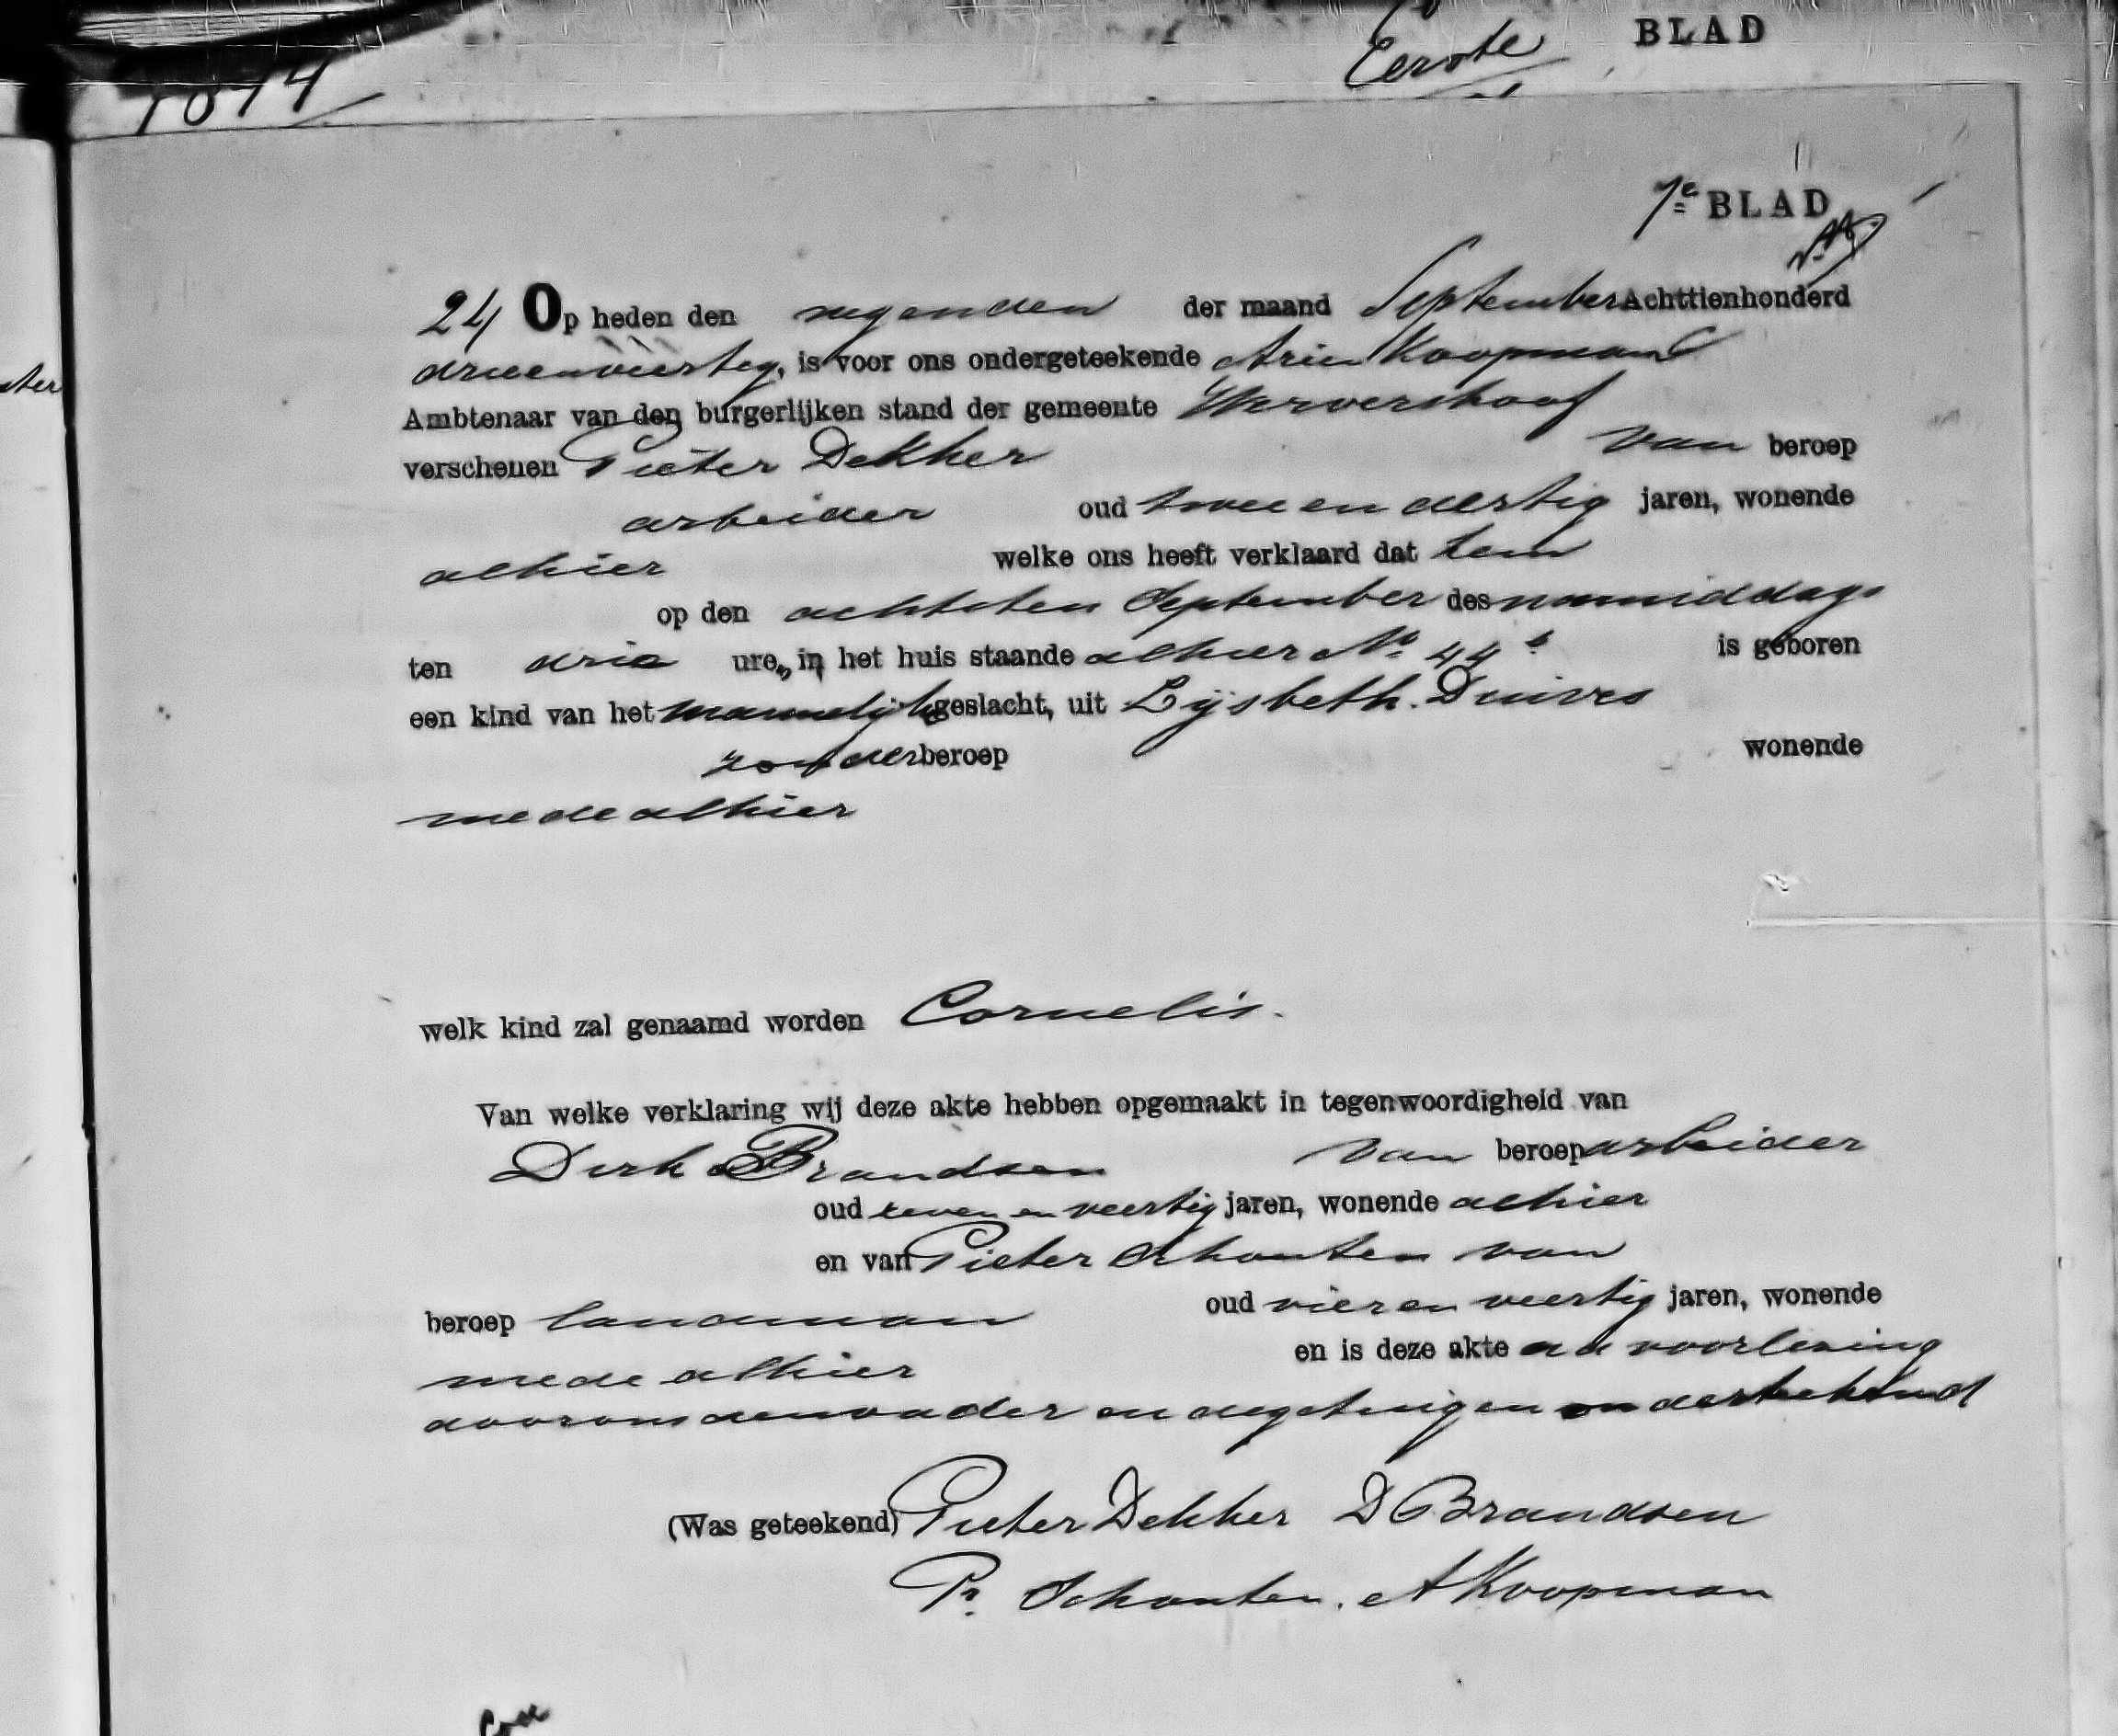 Eerste BLAD
1844
7e BLAD
24 Op heden den negenden der maand September Achttienhonderd
drieenveertig, is voor ons ondergeteekende Arien Koopman
Ambtenaar van den burgerlijken stand der gemeente Wervershoof
verschenen Pieter Dekker van beroep
arbeider oud twee en dertig jaren, wonende
alhier welke ons heeft verklaard dat hem
op den achtsten September des namiddags
ten drie ure, in het huis staande alhier No 44 b is geboren
een kind van het mannelijk geslacht, uit Lijsbeth Duives
zonder beroep wonende
mede alhier
welk kind zal genaamd worden Cornelis.
Van welke verklaring wij deze akte hebben opgemaakt in tegenwoordigheid van
Dirk Brandsen van beroep arbeider
oud zeven en veertig jaren, wonende alhier
en van Pieter Schouten van
beroep landman oud vier en veertig jaren, wonende
mede alhier en is deze akte na voorlezing
door ons den vader en de getuigen onderteekend
(Was geteekend) Pieter Dekker D Brandsen
Pr. Schouten. A Koopman